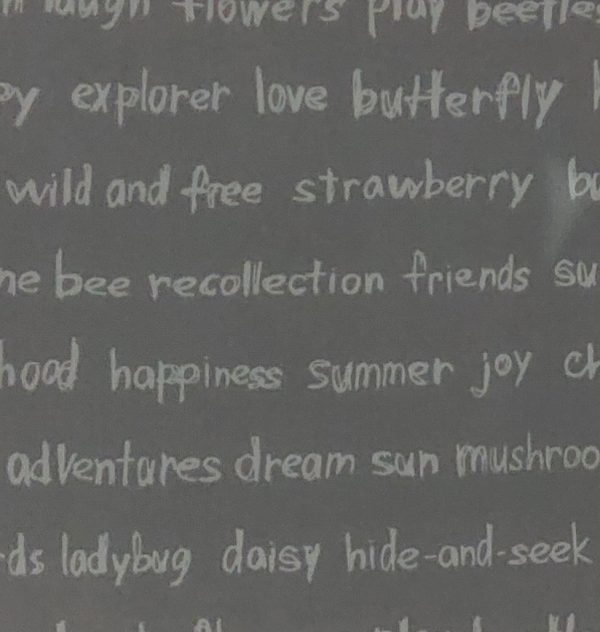 laugh flowers play beetles
explorer love butterfly
wild and free strawberry bu
ne bee recollection friends su
hood happiness summer joy ch
adventures dream sun mushroo
ds ladybug daisy hide-and-seek